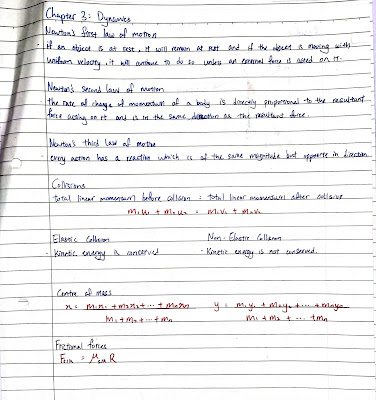 Chapter 3: Dynamics
Newton's first law of motion
- If an object is at rest, it will remain at rest and if the object is moving with
uniform velocity, it will continue to do so unless an external force is acted on it.
Newton's second law of motion
- the rate of change of momentum of a body is directly proportional to the resultant
force acting on it and is in the same direction as the resultant force.
Newton's third law of motion
- every action has a reaction which is of the same magnitude but opposite in direction
Collisions
total linear momentum before collision = total linear momentum after collision
m₁u₁ + m₂u₂ = m₁v₁ + m₂v₂
Elastic Collision
- Kinetic energy is conserved
Non-Elastic Collision
- Kinetic energy is not conserved.
Centre of mass
x = m₁x₁ + m₂x₂ + ... + mₙxₙ
m₁ + m₂ + ... + mₙ
y = m₁y₁ + m₂y₂ + ... + mₙyₙ
m₁ + m₂ + ... + mₙ
Frictional forces
= μ R